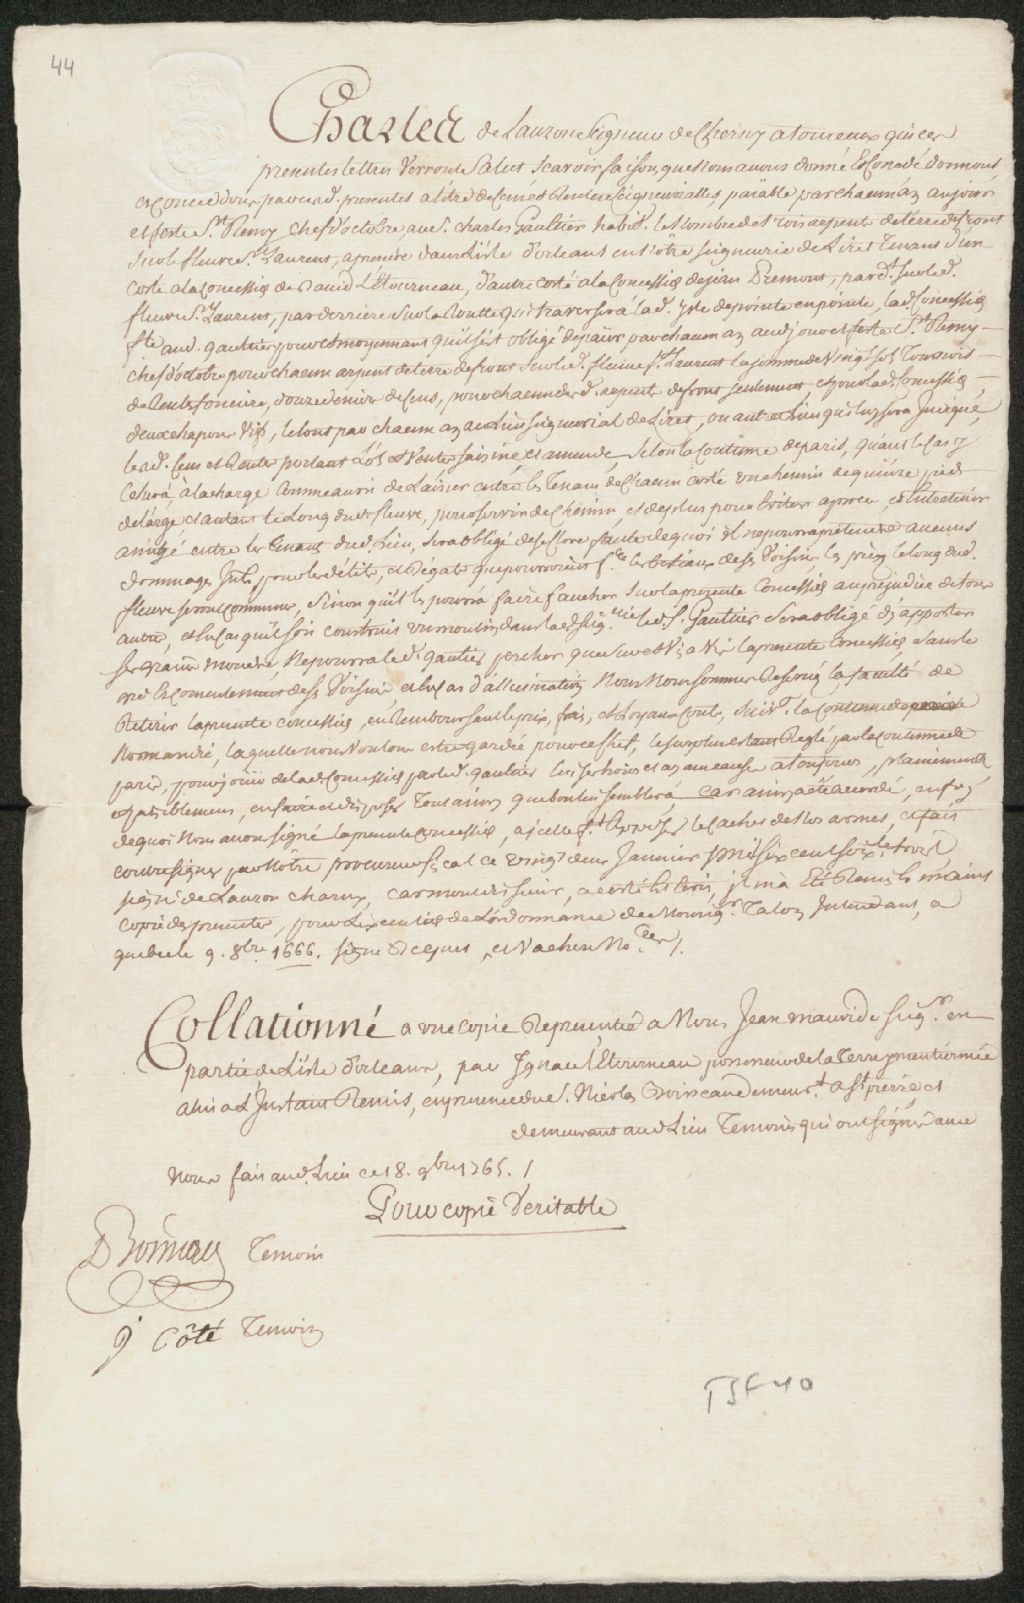 44
Charles de Lauzon Seigneur de Charny a tous ceux qui ces
presentes lettres verront Salut Scavoir faisons que nous avons donné & Concedé donnons
et Concedons par ces d. presentes a titre de Cens et Rentes Seigneurialles, païable par chacun an au jour
et feste St. Remy chef d'octobre, au S. charles Gaultier habit. le Nombre de trois arpent de terre de front
Sur le fleuve St. Laurent, a prendre dans L'isle d'orleans en Nôtre Seigneurie de Liret Tenant d'un
costé a la Concession de David L'Etourneau, d'autre costé a la Concession de jean Premont, par dt. sur led.
fleuve St. Laurent, par derriere Sur la Routte qui traversera lad. Isle de pointe en pointe, lad. Concession
fte. aud. gaultier pour et moyennant qu'il s'est obligé de païer par chacun an aud. jour et feste St. Remy
chef d'octobre pour chacun arpent de terre de front Sur led. fleuve St. Laurent la somme de Vingt Sols Tournois
de Rente fonciere, douze deniers de Cens, pour chacun desd. arpent de front seulement et pour lad. Concession
deux chapons Vifs, le tout par chacun an au Lieu seigneurial de Liret, ou autre Lieu qui luy sera Indiqué,
lesd. Cens et Rentes portant Lots et Ventes saisine et amende, Selon la Coutume de paris, quand le Cas y
Echera, à la charge de Laisser entre les Tenans de Chacun costé un chemin de quinze pied
de large et autant le Long dud. fleuve, pour servir de Chemin, et de plus pour Eviter a procés, et Entretenir
amitié entre les Tenans dud. Lieu, Sera obligé de se Clore faute de quoi il ne pourra prétendre aucuns
dommages Int. pour les délits, et Dégats que pourroient fre. les bestiaux de ses Voisins les prez le long dud.
fleuve seront communs, Sinon qu'il les pourra faire faucher Sur la presente Concession au prejudice de tous
autre, et En Cas qu'il soit construit un moulin dans lad. Seigrie. led. S. Gaultier Sera obligé d'y apporter
ses grains moudre, Ne pourra led. gaultier pescher que Vis a Vis la presente Concession Sans le
gré & Consentement de ses Voisins et En Cas d'allienation Nous Nous sommes Reservés la faculté de
Retirer la presente Concession, en Remboursant le prix, frais, et Loyaux Couts, suivt. la Coutume de
Normandie, laquelle nous Voulons estre gardée pour cet effet, le surplus estant Reglé par la Coutume de
paris, pour jouir de lad. Concession par led. gaultier luy ses hoirs et ayans cause a toujours, plainement
et paisiblement, en faire et disposer Tout ainsy que bon luy semblera, car ainsy a été accordé, en foy
de quoi Nous avons signé la presente Concession, a icelle ft. apposer le cachet de Nos armes, et fait
contresigner par Nôtre procureur fiscal ce vingt deux Janvier Mil six cent soixte. trois
signé de Lauzon Charny,
copie des presentes, pour L'execution de L'ordonnance de Monsigr. Talon Intendant, a
quebec le 9. 8bre. 1666. signé et Vachon Nore. /.
Collationné a une copie Representée a Nous Jean mauvide Seigr. en
partie de L'isle d'orleans, par Ignace L'Etourneau possesseur de la Terre mentionnée
a lui a L'Instant Remis, en presence du S. Nicolas a St. pierre et
demeurant aud. Lieu Temoins qui ont signés avec
Nous fait aud. Lieu ce 18. 9bre 1765. /
Pour copie Veritable
Temoin
J. Côté Temoin